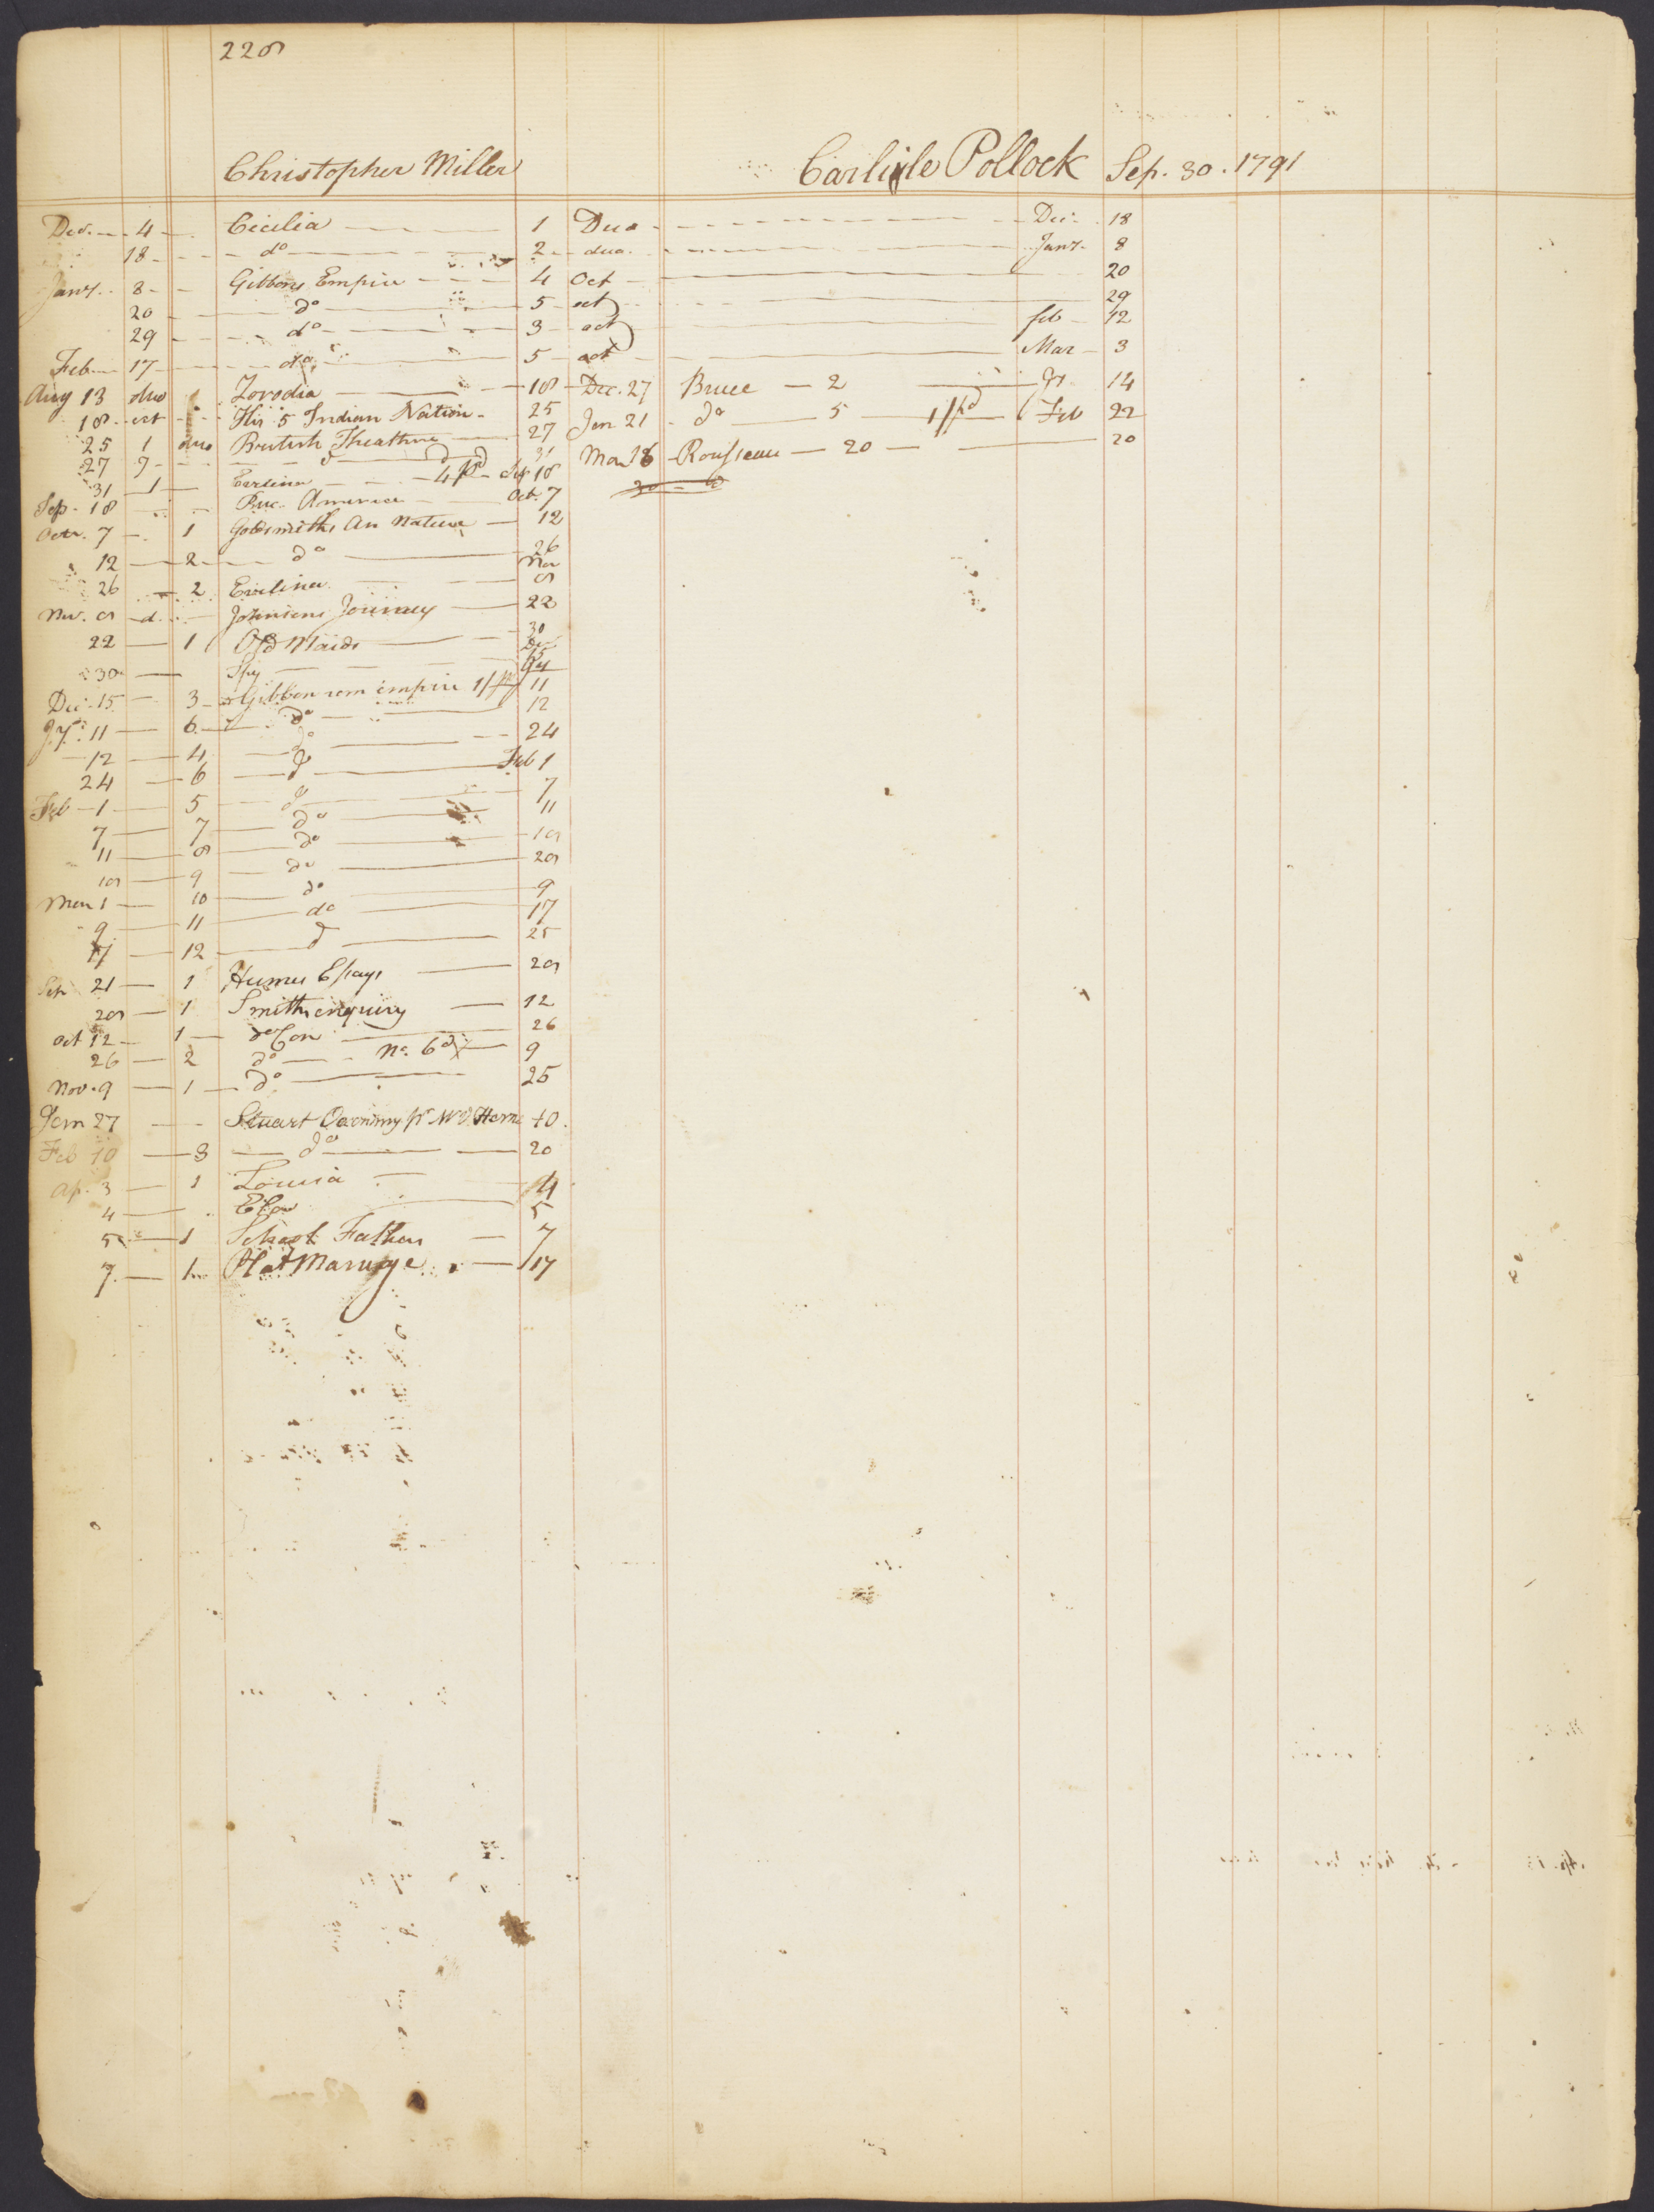 228
Christopher Miller
Carlisle Pollock Sep. 30. 1791
Dec. 4 Cicilia 1 Duo Dec. 18
18 do 2 duo. Jany. 8
Jany. 8 Gibbons Empire 4 Oct 20
20 do 5 oct 29
29 do 3 oct feb 12
Feb 17 do 5 oct Mar 3
Aug 13 duo 1 18 Dec. 27 Bruce 2 14
18 oct His 5 Indian Nation 25 Jan 21 do 5 1/pd Feb 22
25 1 duo British Theathre 27 Mar Rousseau 20 20
27 9 d 31
31 1 Sep 18
Sep. 18 America Oct. 7
Octr. 7 1 Goldsmiths An Nature 12
12 2 do 26
26 2 Evelina Nov 8
Nov. 8 d. Johnsons Journey 22
22 1 Old Maids 30
30 Spy Dec 15
Dec. 15 3 Gibbon rom empire 11
11 6 do 12
12 4 do 24
24 6 d Feb 1
Feb 1 5 do 7
7 7 do 11
11 8 do 18
18 9 do 28
Mar 1 10 do 9
9 11 do 17
17 12 d 25
Sep 21 1 Humes Essays 28
28 1 Smiths enquiry 12
Oct 12 1 do Con 26
26 2 do No. 6 9
Nov. 9 1 do 25
Jan 27 Stuart Oeconomy 10
Feb 10 3 do 20
Ap. 3 1 Louisa 4
4 5
5 1 School Fathers 7
7 1 Plat Marriage 17